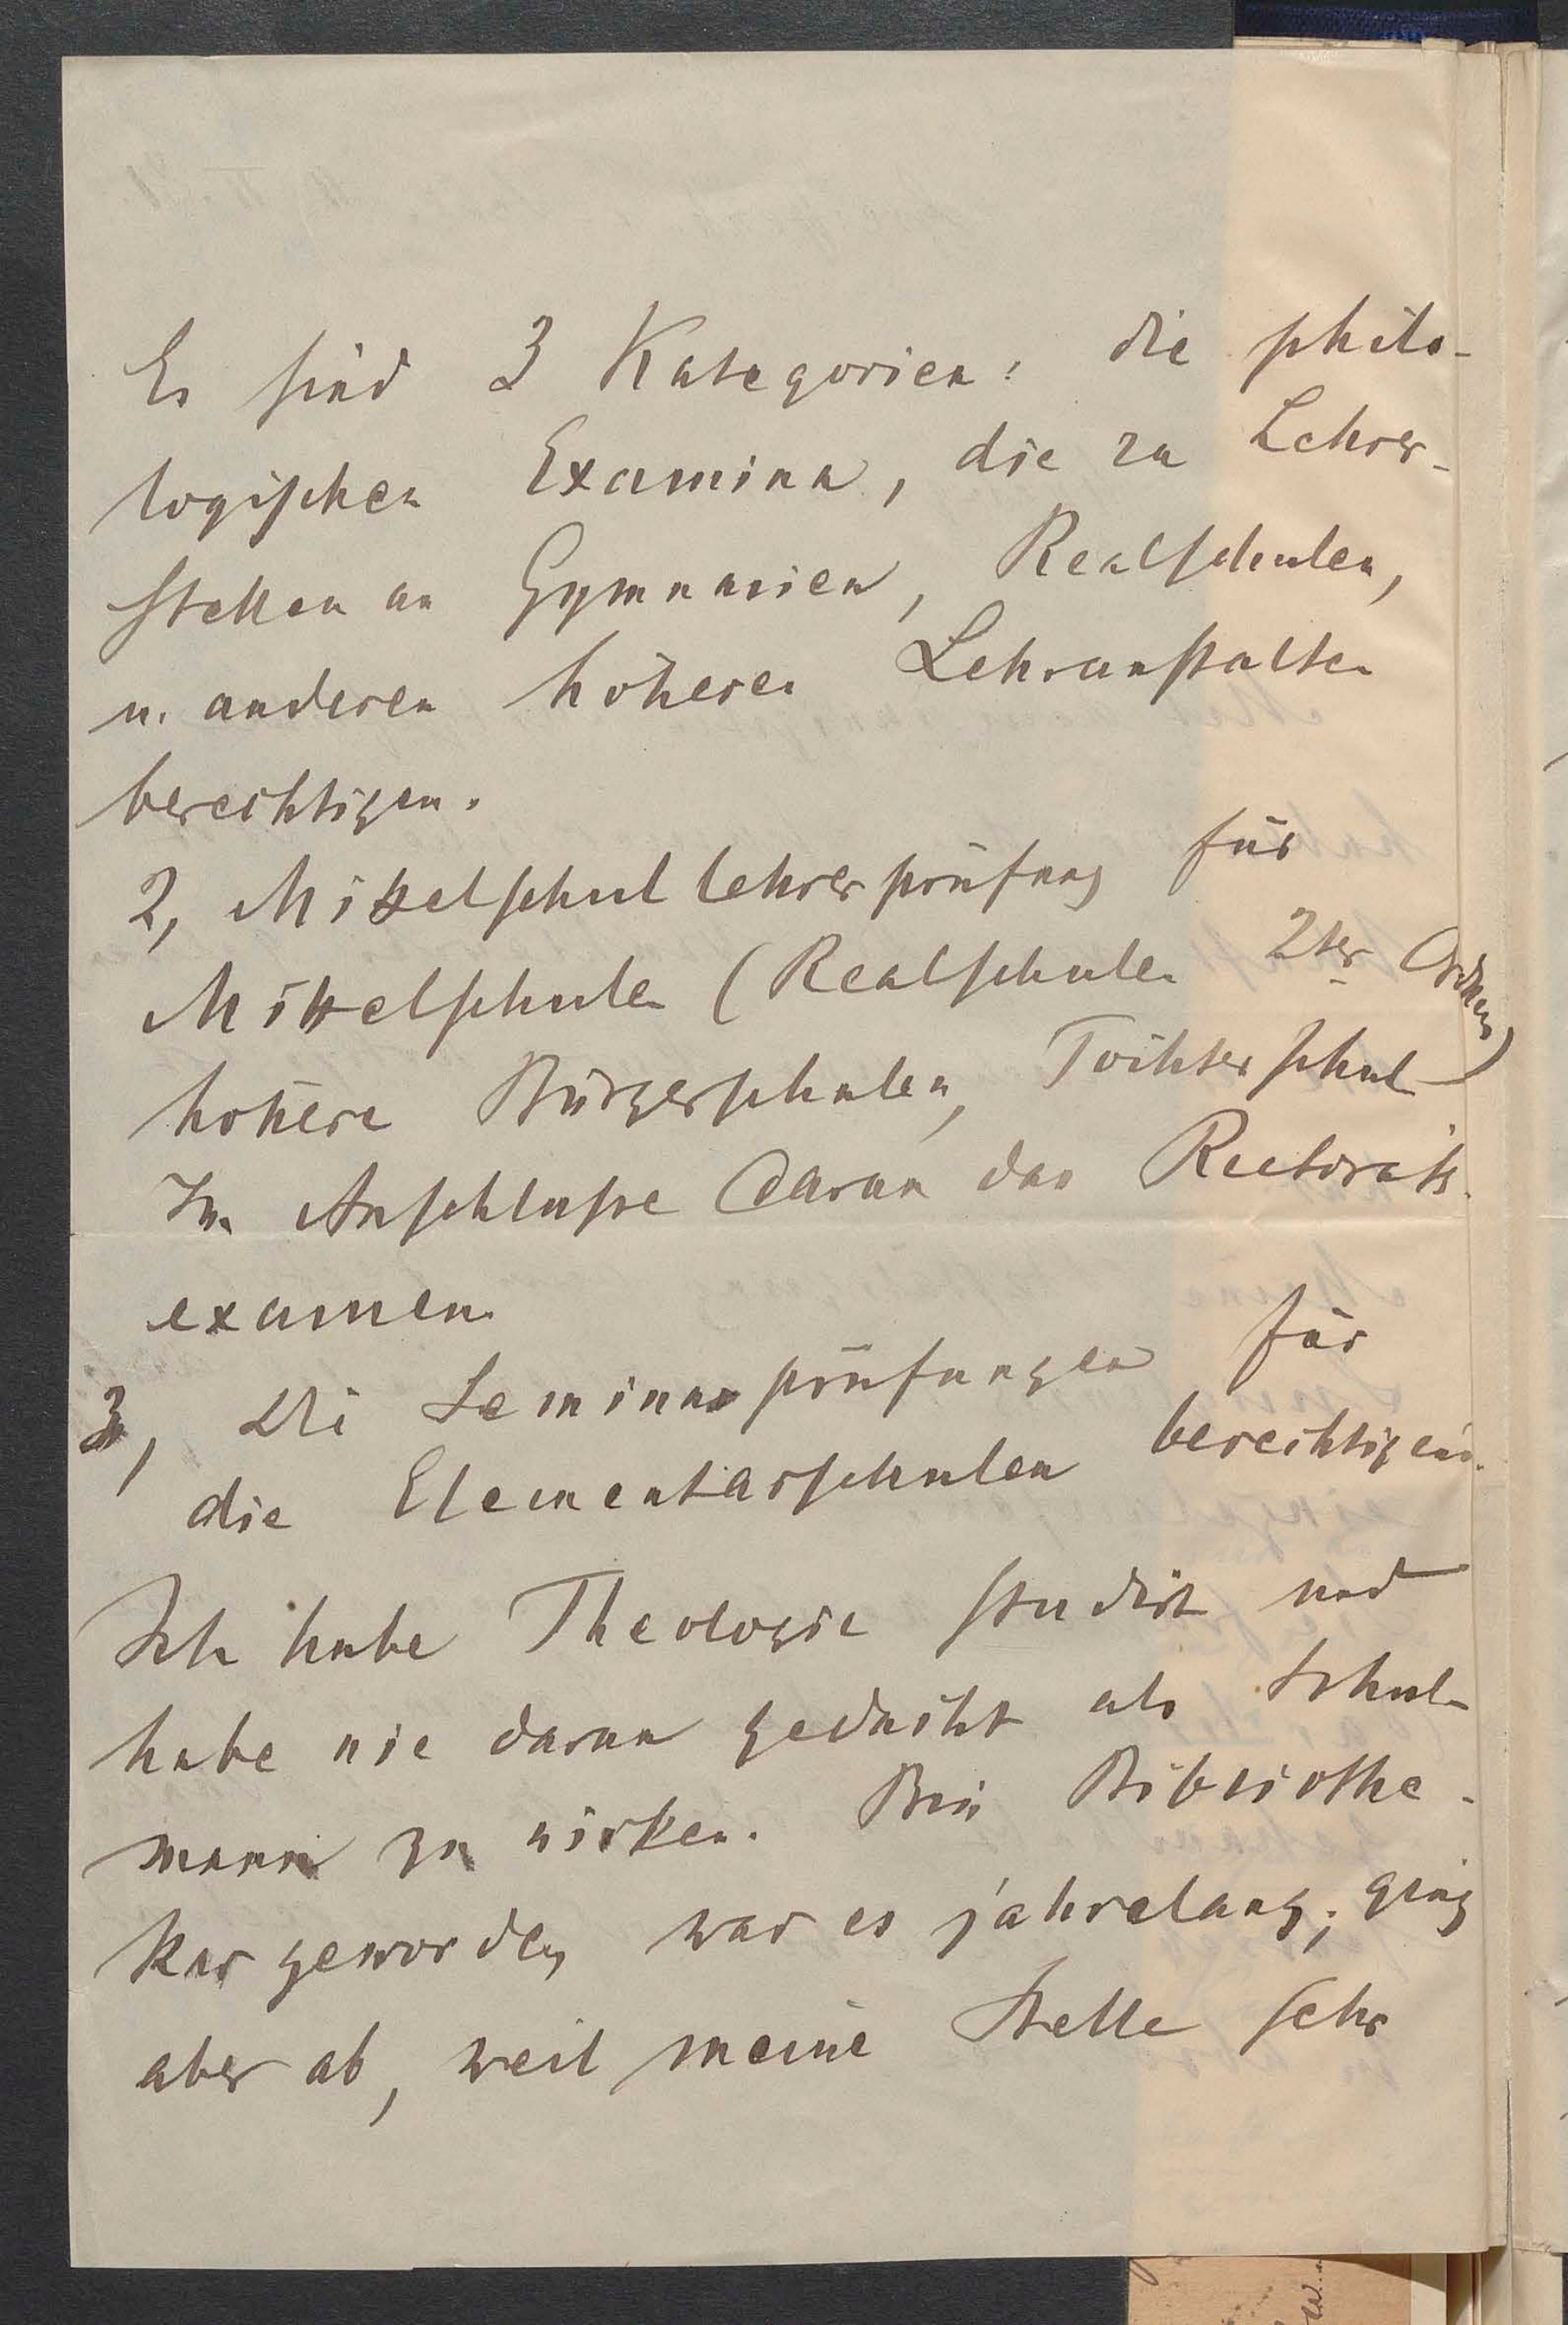 Es sind 3 Kategorien: die philo-
logischen Examina, die zu Lehrer-
stellen an Gymnasien, Realschulen,
u. anderen höheren Lehranstalten
berechtigen.
2, Mittelschullehrerprüfung für
Mittelschulen (Realschulen 2ter Ordnung)
höhere Bürgerschulen, Töchterschul
Im Anschlusse daran das Rectorats
examen.
3, Die Seminarprüfungen für
die Elementarschulen berechtigend.
Ich habe Theologie studirt und
habe nie daran gedacht als Schul-
mann zu wirken. Bin Bibliothe-
kar geworden, war es jahrelang; ging
aber ab, weil meine Stelle sehr